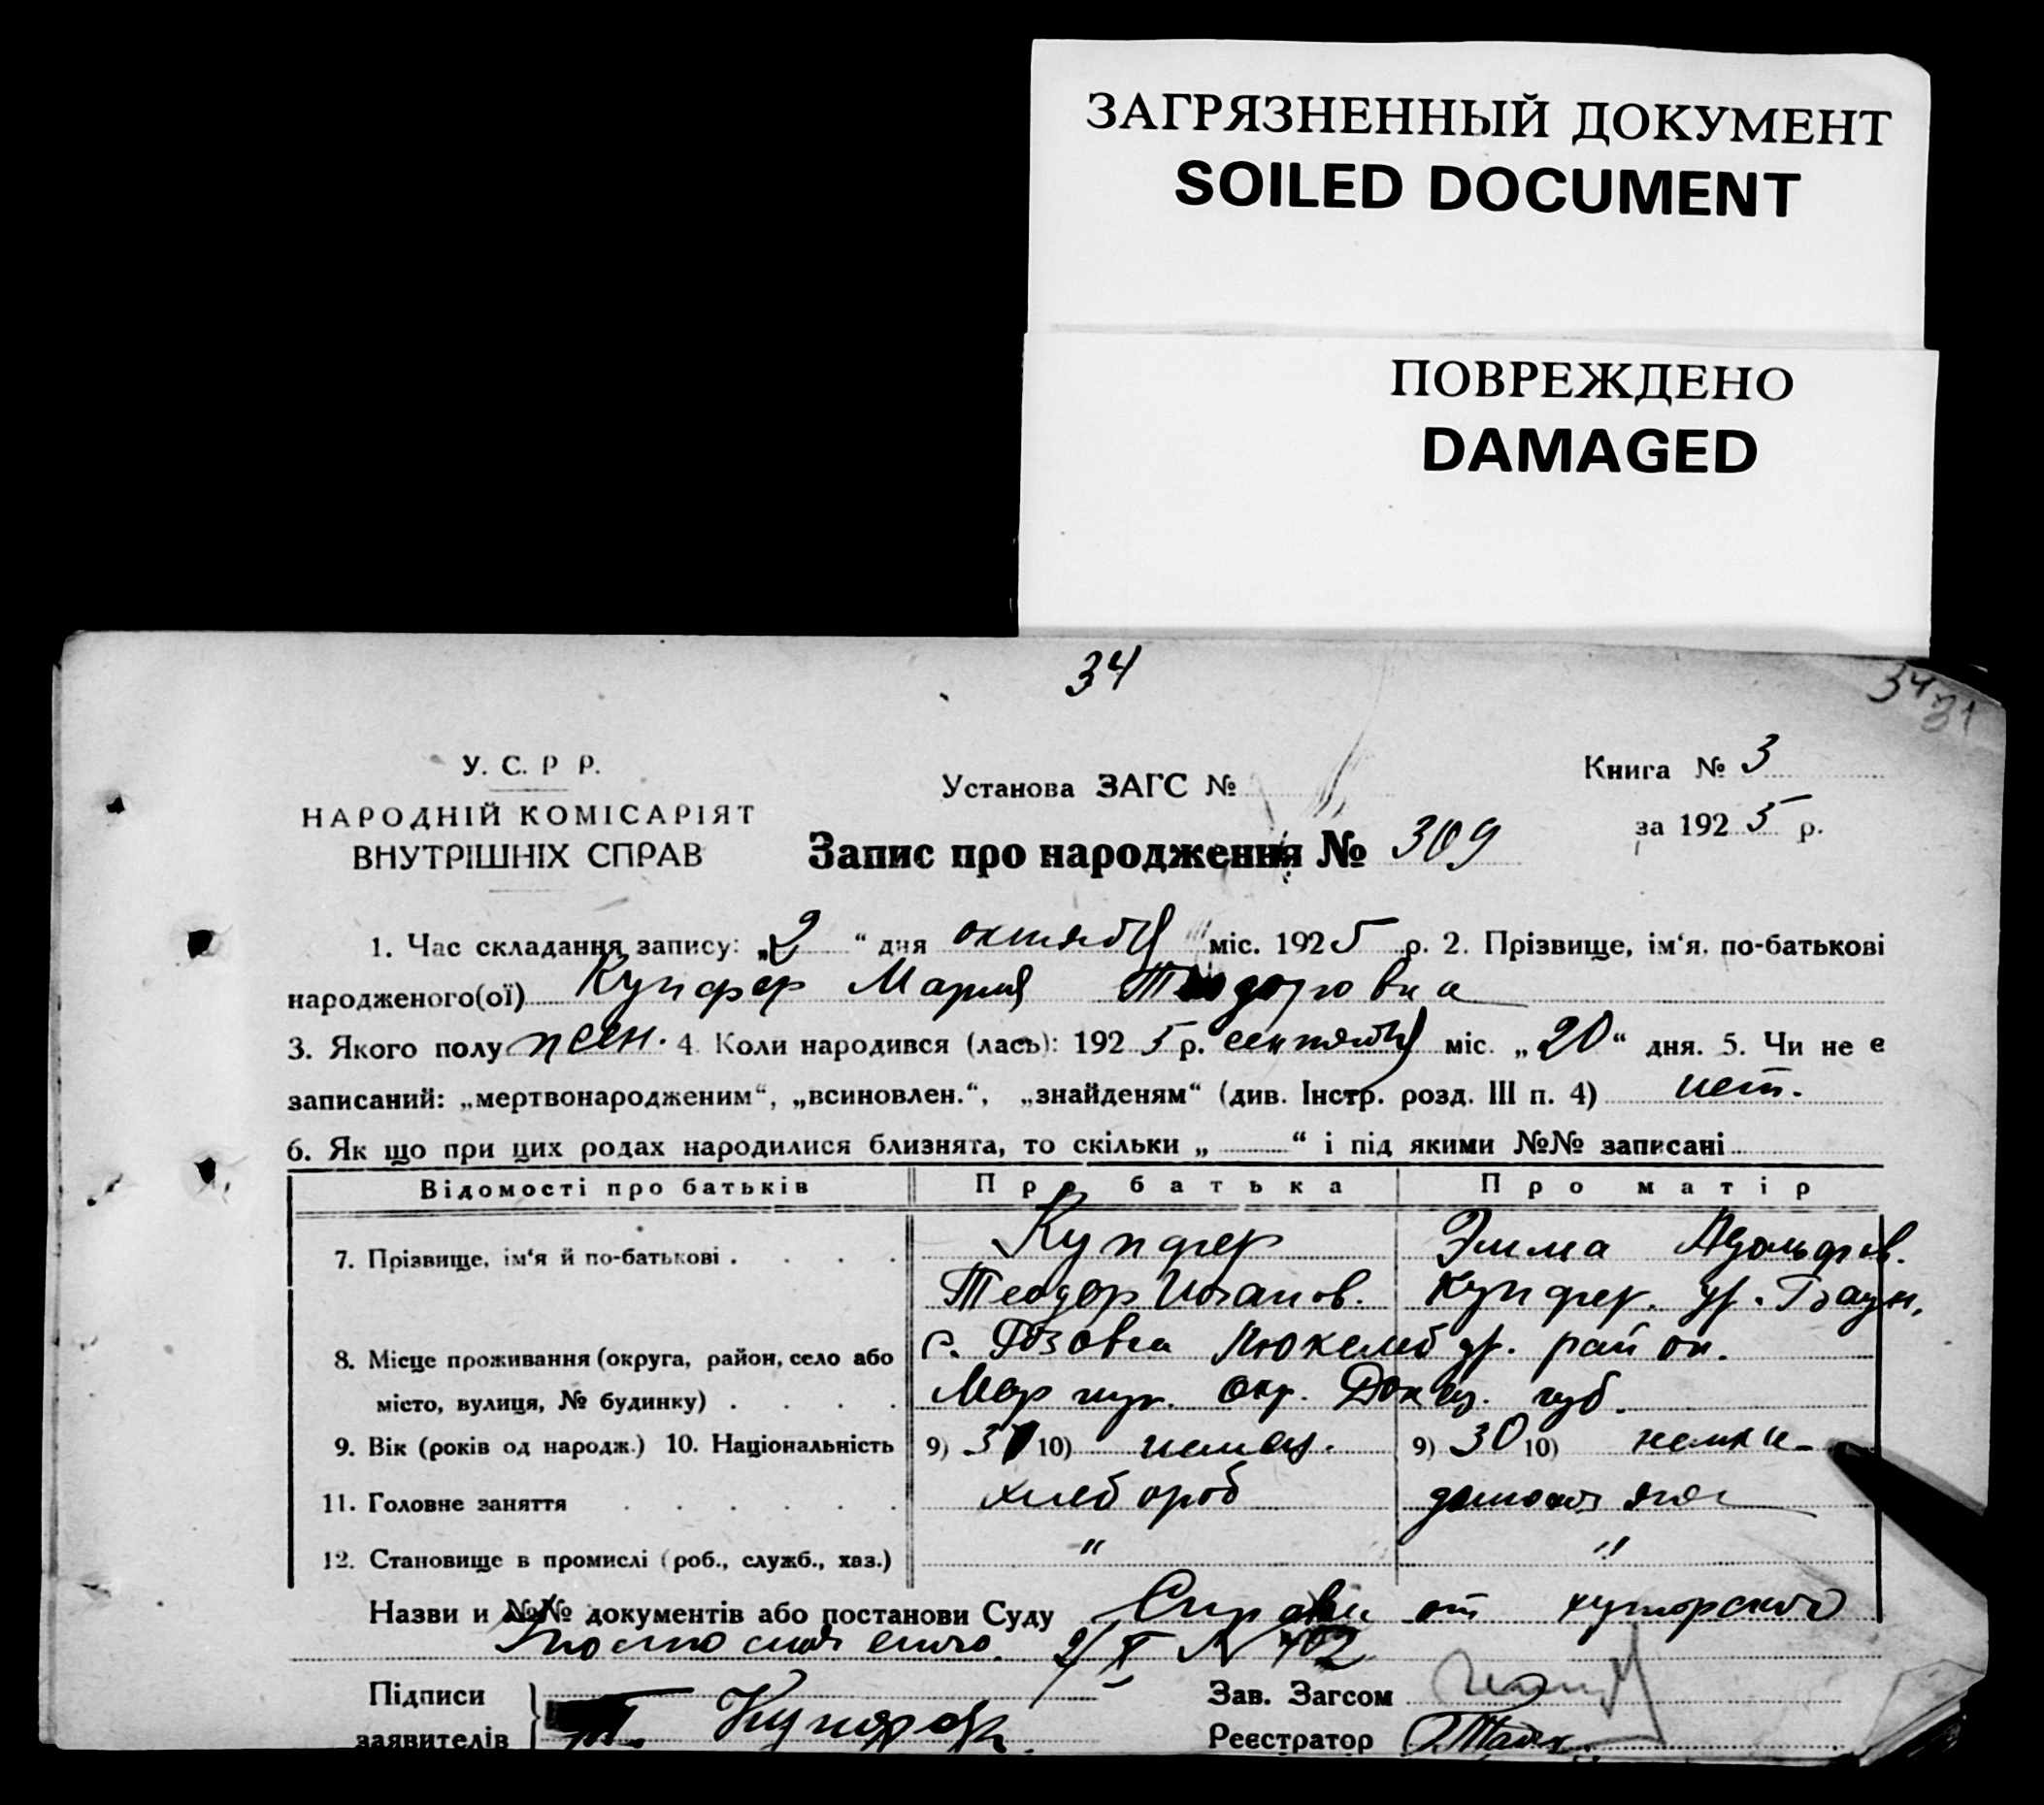 ЗАГРЯЗНЕННЫЙ ДОКУМЕНТ
SOILED DOCUMENT
ПОВРЕЖДЕНО
DAMAGED
34
34
У. С. Р Р.
НАРОДНІЙ КОМІСАРІЯТ
ВНУТРІШНІХ СПРАВ
Установа ЗАГС №
Книга № 3
за 1925 р.
Запис про народження № 309
1. Час складання запису: „2“ дня октября міс. 1925 р. 2. Прізвище, ім‘я, по-батькові
народженого(ої) Купфер Мария Теодоровна
3. Якого полу жен. 4. Коли народився (лась): 1925 р. сентября міс. „20“ дня. 5. Чи не є
записаний: „мертвонародженим“, „всиновлен.“, „знайденям“ (див. Інстр. розд. III п. 4) нет.
6. Як що при цих родах народилися близнята, то скільки „ “ і під якими №№ записані
Відомості про батьків Про батька Про матір
7. Прізвище, ім‘я й по-батькові . . . . Купфер Эмма Адольфов.
Теодор Иванов. Купфер. ур. Браун.
8. Місце проживання (округа, район, село або с. район.
місто, вулиця, № будинку) . . . . Мариуп. окр. Донец. губ.
9. Вік (років од народж.) 10. Національність 9) 31 10) немец. 9) 30 10) немк
11. Головне заняття . . . . . . хлебороб
12. Становище в промислі (роб., служб., хаз.) " "
Назви и №№ документів або постанови Суду Справка от хуторского
2/X № 402
Підписи
заявителів Т. Купфер.
Зав. Загсом
Реєстратор